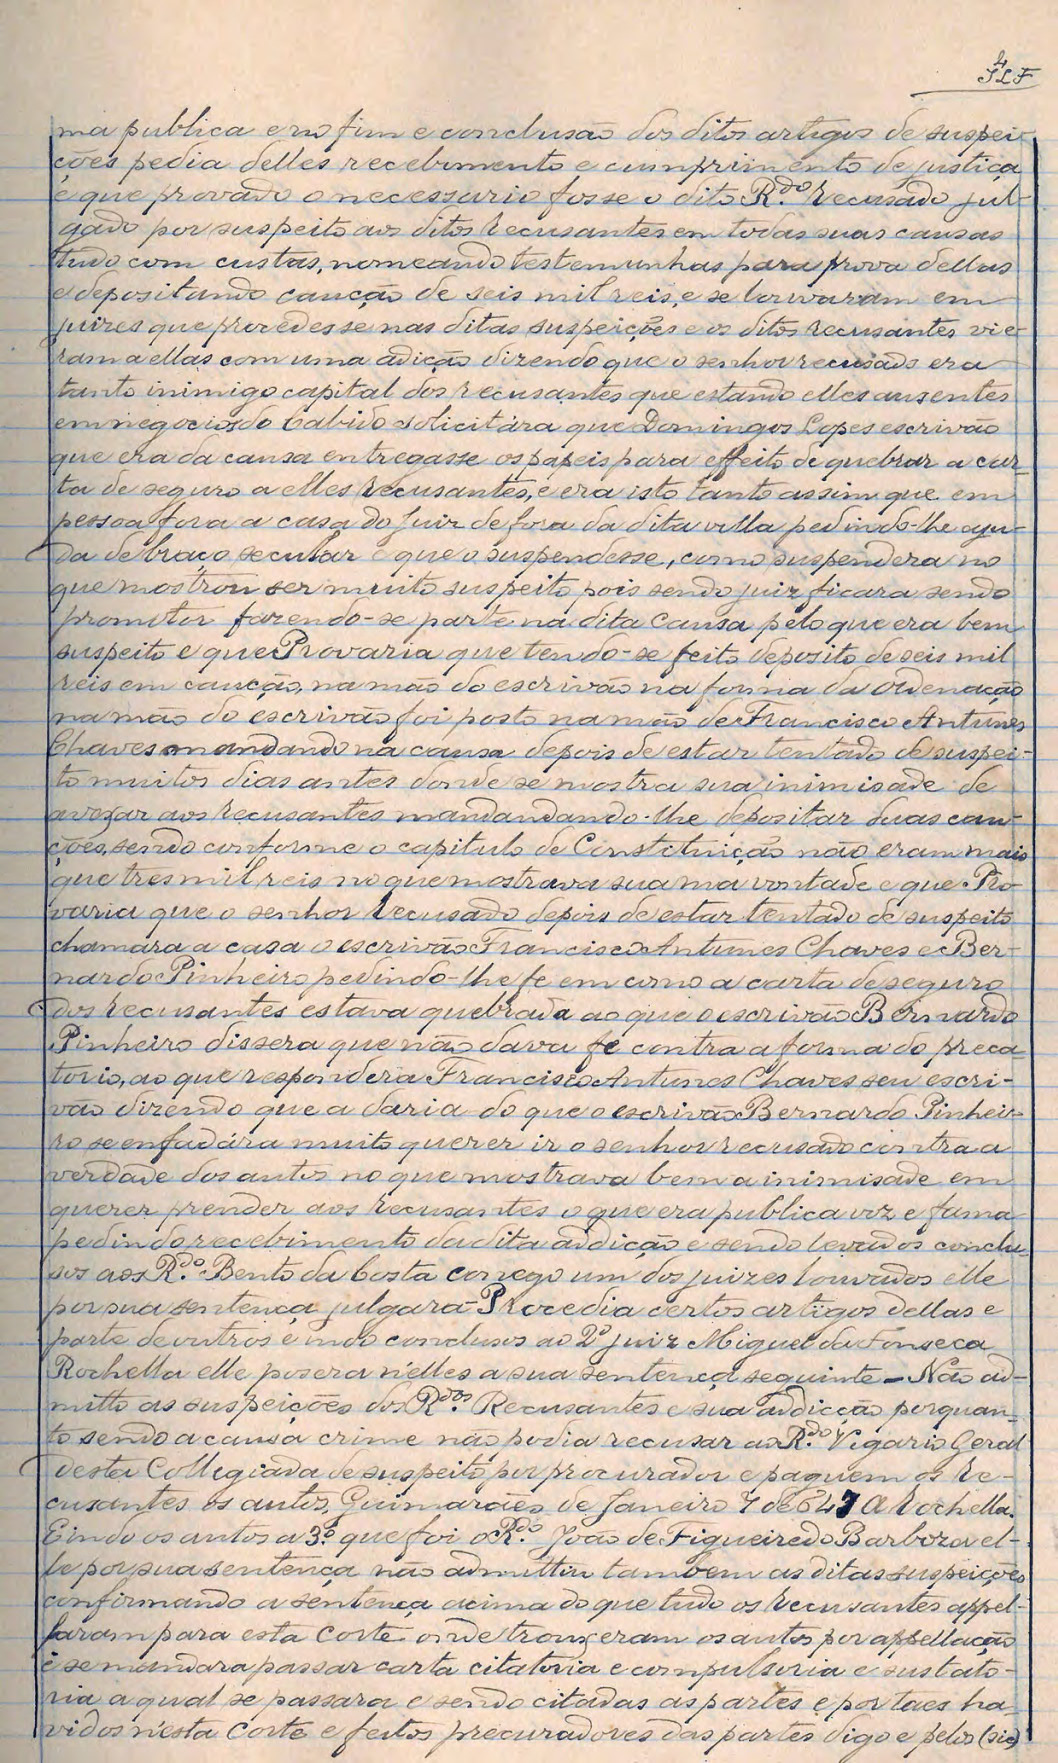 4
JLF
ma publica e no fim e conclusão dos ditos artigos de suspei-
ções pedia delles recebimento e cumprimento de justiça
e que provado o necessario fosse o dito R.do Recusado jul-
gado por suspeito aos ditos Recusantes em todas suas causas
tudo com custas, nomeando testemunhas para prova dellas
e depositando caução de seis mil reis, e se louvaram em
juizes que procedesse nas ditas suspeições e os ditos Recusantes vie-
ram a ellas com uma adição dizendo que o senhor recusado era
tanto inimigo capital dos recusantes que estando elles auzentes
em negocios do Cabido solicitára que Domingos Lopes escrivão
que era da causa entregasse os papeis para effeito de quebrar a car-
ta de seguro a elles Recusantes, e era isto tanto assim que em
pessoa fora a casa do Juiz de fora da dita villa pedindo-lhe aju-
da de braço secular e que o suspendesse, como suspendera no
que mostrou ser muito suspeito pois sendo juiz ficara sendo
promotor fazendo-se parte na dita causa pelo que era bem
suspeito e que Provaria que tendo-se feito deposito de seis mil
reis em caução, na mão do escrivão na forma da Ordenação
na mão do escrivão foi posto na mão de Francisco Antunes
Chaves mandando na causa depois de estar tentado de suspei-
to muitos dias antes donde se mostra sua inimisade de
avexar aos Recusantes mandandando-lhe depositar duas cau-
ções, sendo conforme o capitulo de Constituição não eram mais
que tres mil reis no que mostrava sua ma vontade e que Pro-
varia que o senhor Recusado depois de estar tentado de suspeito
chamára a casa o escrivão Francisco Antunes Chaves e Ber-
nardo Pinheiro pedindo-lhe fe em como a carta de seguro
dos Recusantes estava quebrada ao que o escrivão Bernardo
Pinheiro dissera que não dava fé contra a forma do preca-
torio, ao que respondera Francisco Antunes Chaves seu escri-
vão dizendo que a daria do que o escrivão Bernardo Pinhei-
ro se enfadára muito querer ir o senhor recusado contra a
verdade dos autos no que mostrava bem a inimisade em
querer prender aos recusantes o que era publica voz e fama
pedindo recebimento da dita addição e sendo levados conclu-
sos aos R.do Bento da Costa conego um dos juizes louvados elle
por sua sentença julgara-Procedia certos artigos dellas e
parte de outros e indo conclusos ao 2º juiz Miguel da Fonseca
Rochella elle posera n'elles a sua sentença seguinte - Não ad-
mitto as suspeições dos R.dos Recusantes e sua addicção porquan-
to sendo a causa crime não podia recusar ao R.do Vigario Geral
desta Collegiada de suspeito por procurador e paguem os Re-
cusantes os autos, Guimarães de Janeiro 7 de 647 A Rochella.
E indo os autos a 3º que foi o R.do João de Figueiredo Barboza el-
le por sua sentença não admittiu tambem as ditas suspeições
confirmando a sentença acima do que tudo os Recusantes appel-
laram para esta Corte onde trouxeram os autos por appellação
e se mandara passar carta citatoria e compulsoria e sustato-
ria a qual se passara e sendo citadas as partes e por taes ha-
vidos n'esta Corte e feitos precuradores das partes digo e pelos (sic)